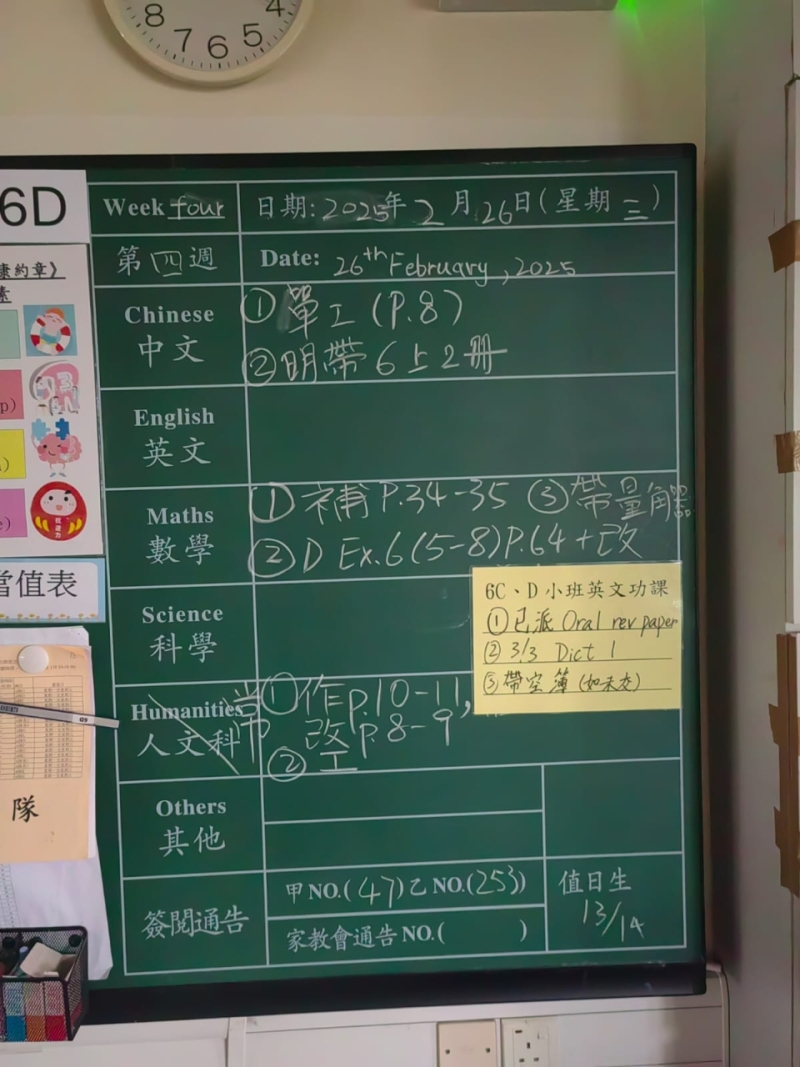 8 7 6 5 4
6D
Week four 日期: 2025年 2月 26日 (星期 三)
第 四 週 Date: 26th February, 2025
Chinese ① 單工 (P.8)
中文 ② 明帶 6上2冊
English
英文
Maths ① 補 P.34-35 ③ 帶量角器
數學 ② D Ex.6 (5-8) P.64 + 改
Science
科學
6C、D 小班英文功課
① 已派 Oral rev paper
② 3/3 Dict 1
③ 帶空簿 (如未交)
Humanities 常 ① 作 p.10-11,
人文科 改 p.8-9
② 工
Others
其他
簽閱通告 甲 NO.(47) 乙 NO.(253)
家教會通告 NO.( )
值日生
13/14
康約章》
素
當值表
隊